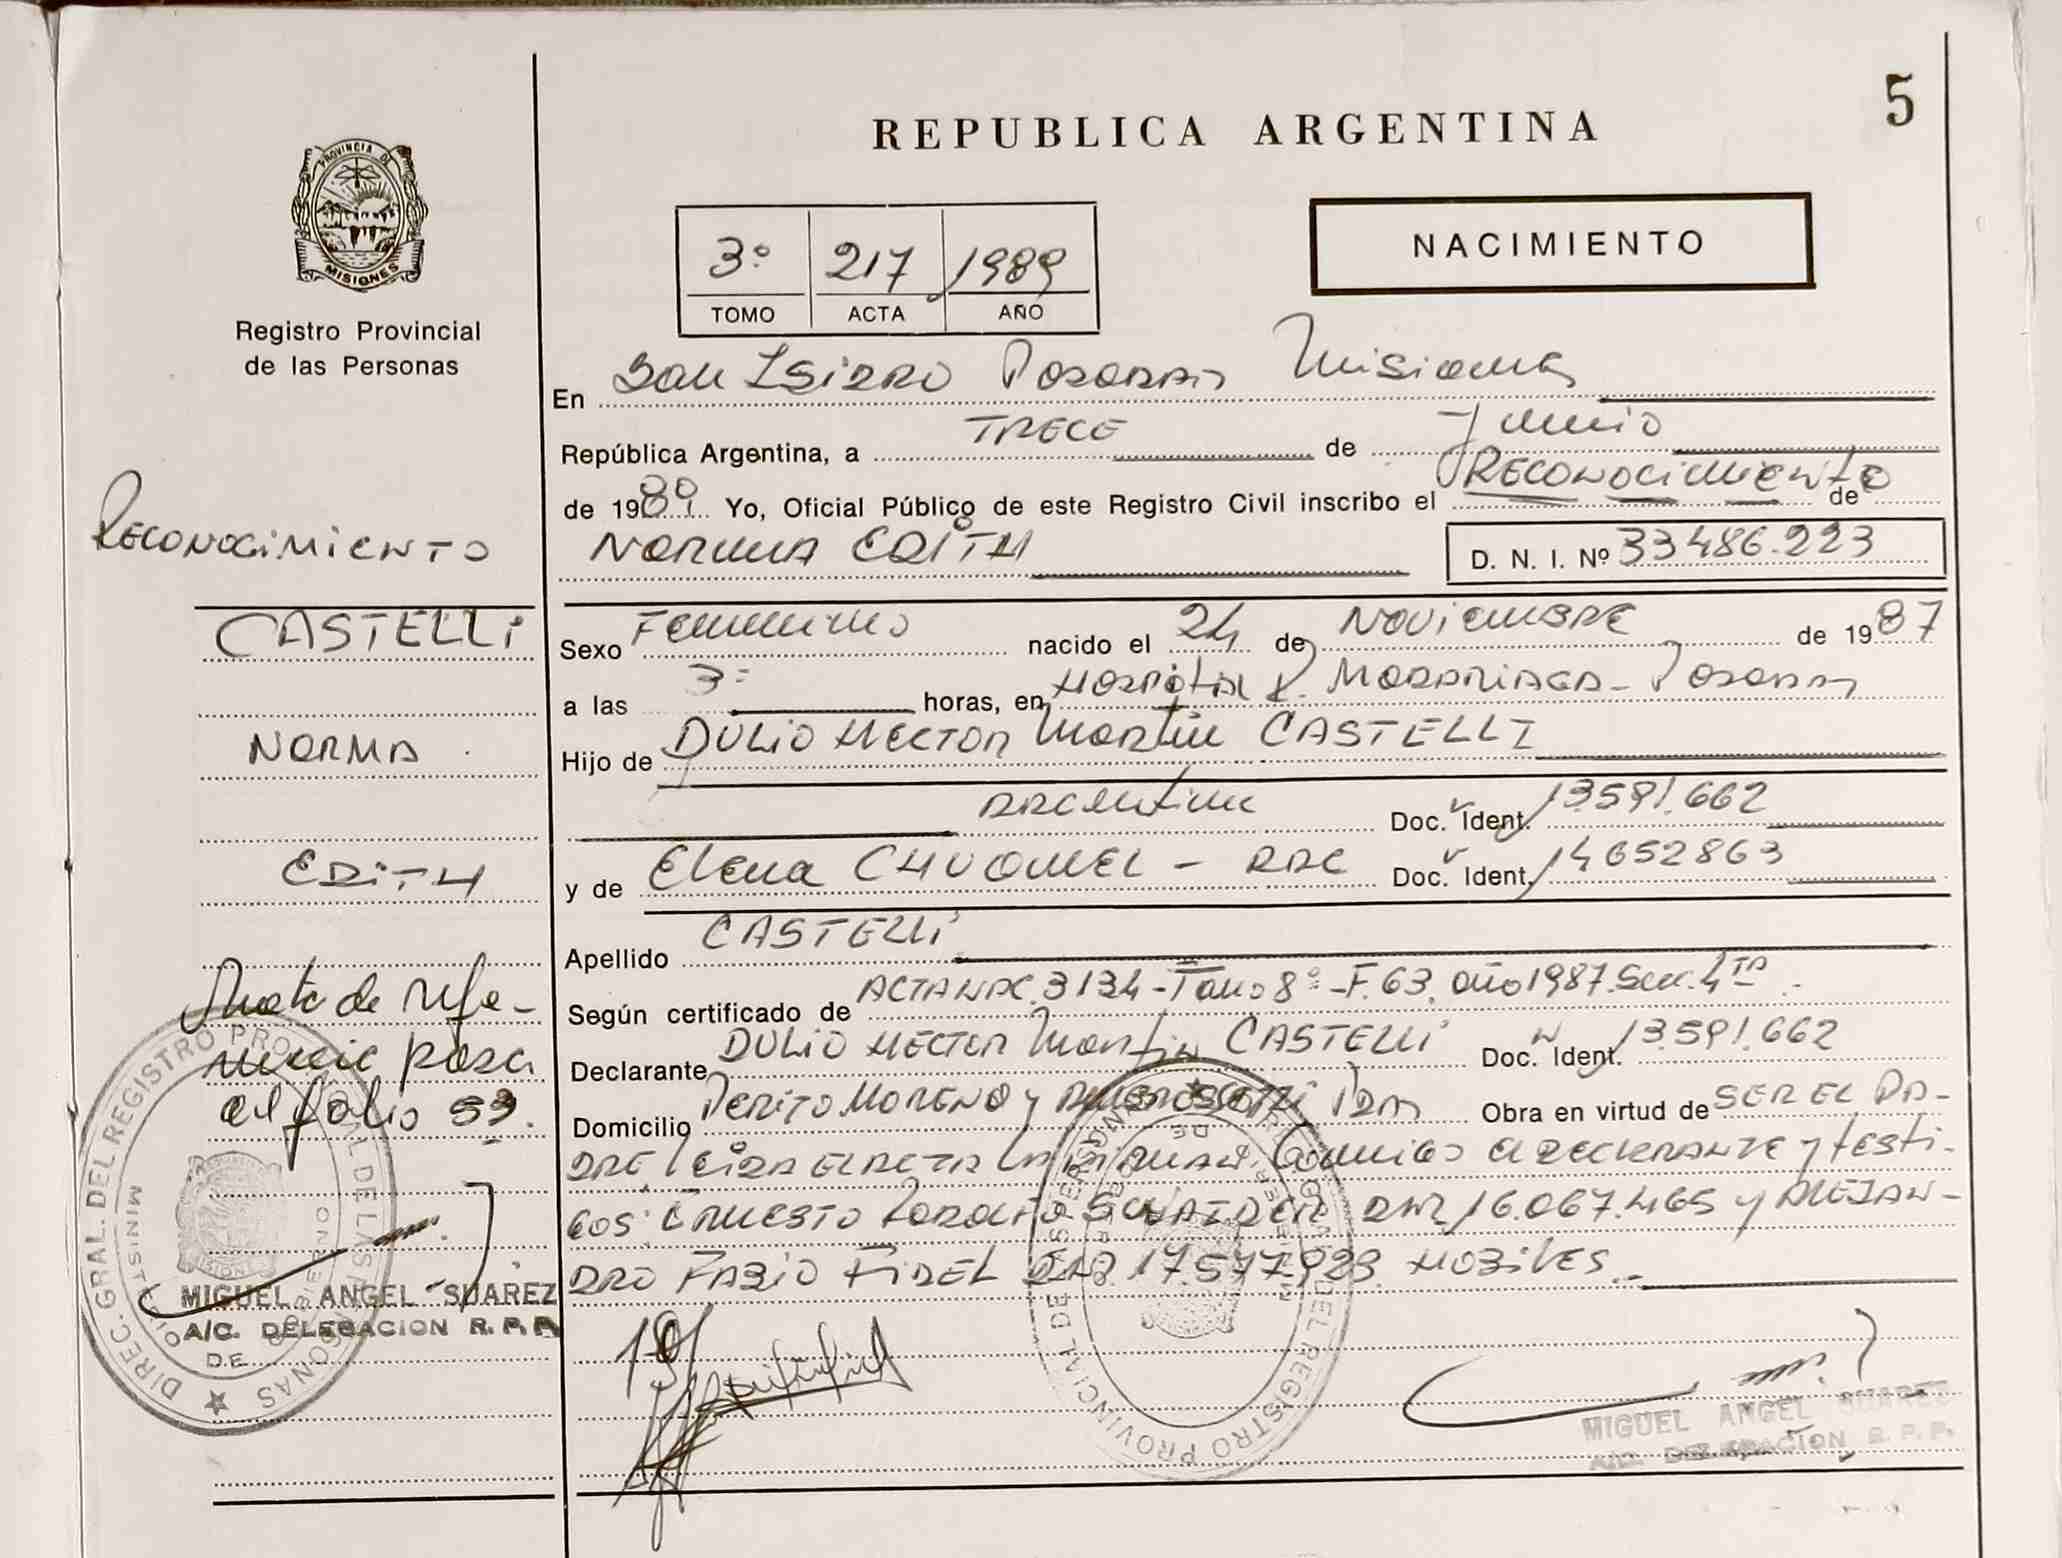 REPUBLICA ARGENTINA
5
PROVINCIA DE
MISIONES
Registro Provincial
de las Personas
3º 217 1989
TOMO ACTA AÑO
NACIMIENTO
En San Isidro Posadas Misiones
República Argentina, a TRECE de Junio
de 1989 Yo, Oficial Público de este Registro Civil inscribo el RECONOCIMIENTO de
NORMA EDITH D. N. I. Nº 33486.223
Sexo Femenino nacido el 24 de NOVIEMBRE de 1987
a las 3 horas, en Hospital R. MADARIAGA - Posadas
Hijo de DULIO HECTOR Martin CASTELLI
Argentino Doc. Ident. 13.591.662
y de Elena CHUQMEL - ARG Doc. Ident. 14652863
Apellido CASTELLI
Según certificado de ACTA NAC. 3134 - Tomo 8º - F. 63. año 1987. Secc. 4ta.
Declarante DULIO HECTOR Martin CASTELLI Doc. Ident. 13.591.662
Domicilio PERITO MORENO y Pdas Obra en virtud de SER EL PA-
DRE, Leida el acta la firman conmigo el declarante y testi-
gos: Ernesto Rodolfo DNI 16.067.465 y ALEJAN-
DRO FABIO FIDEL DNI 17.577.923 HABILES.
RECONOCIMIENTO
CASTELLI
NORMA
EDITH
Nota de refe-
rencia pasa
al folio 53.
DIREC. GRAL. DEL REGISTRO PROVINCIAL DE LAS PERSONAS
MINISTERIO DE GOBIERNO
MIGUEL ANGEL SUAREZ
A/C. DELEGACION R. P. P.
REGISTRO PROVINCIAL DE
MIGUEL ANGEL SUAREZ
A/C. DELEGACION R. P. P.